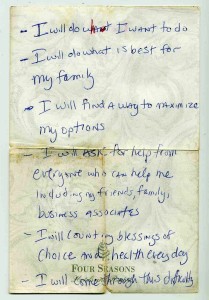 - I will do what I want to do
- I will do what is best for
my family
- I will find a way to maximize
my options
- I will ask for help from
everyone who can help me
including my friends, family,
business associates
- I will counting blessings of
choice and health every day
FOUR SEASONS
- I will come through this difficulty